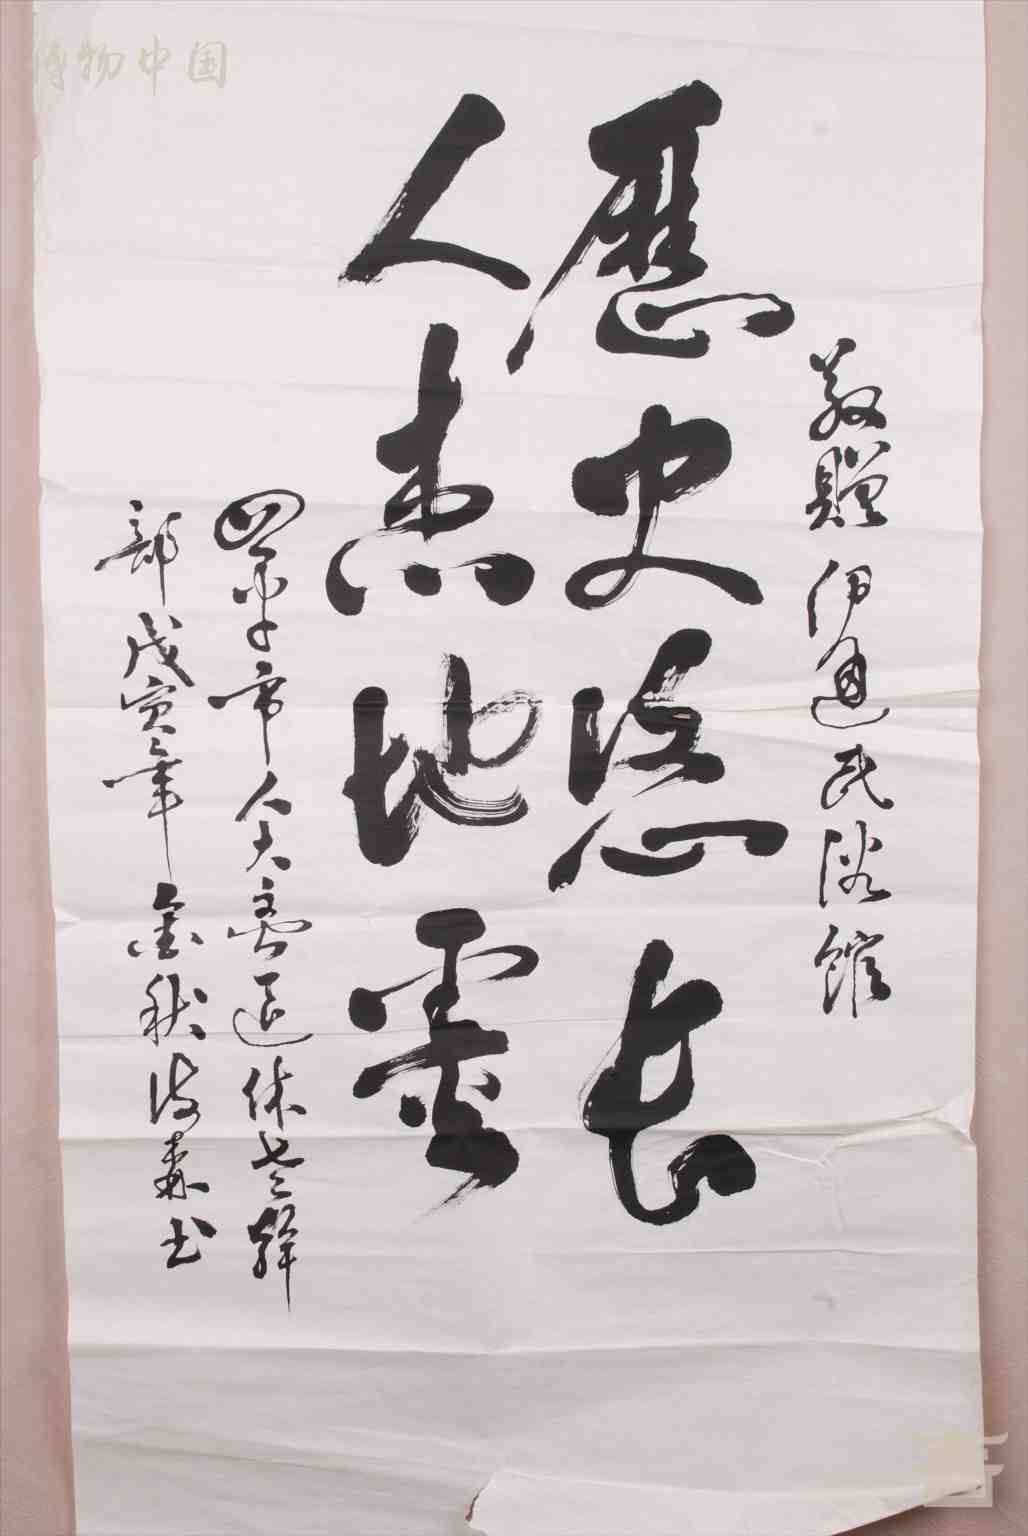 博物中国
敬贈 伊通民俗館
歷史悠長
人杰地靈
四平市人大离退休老幹
部 戊寅年 金秋 森书